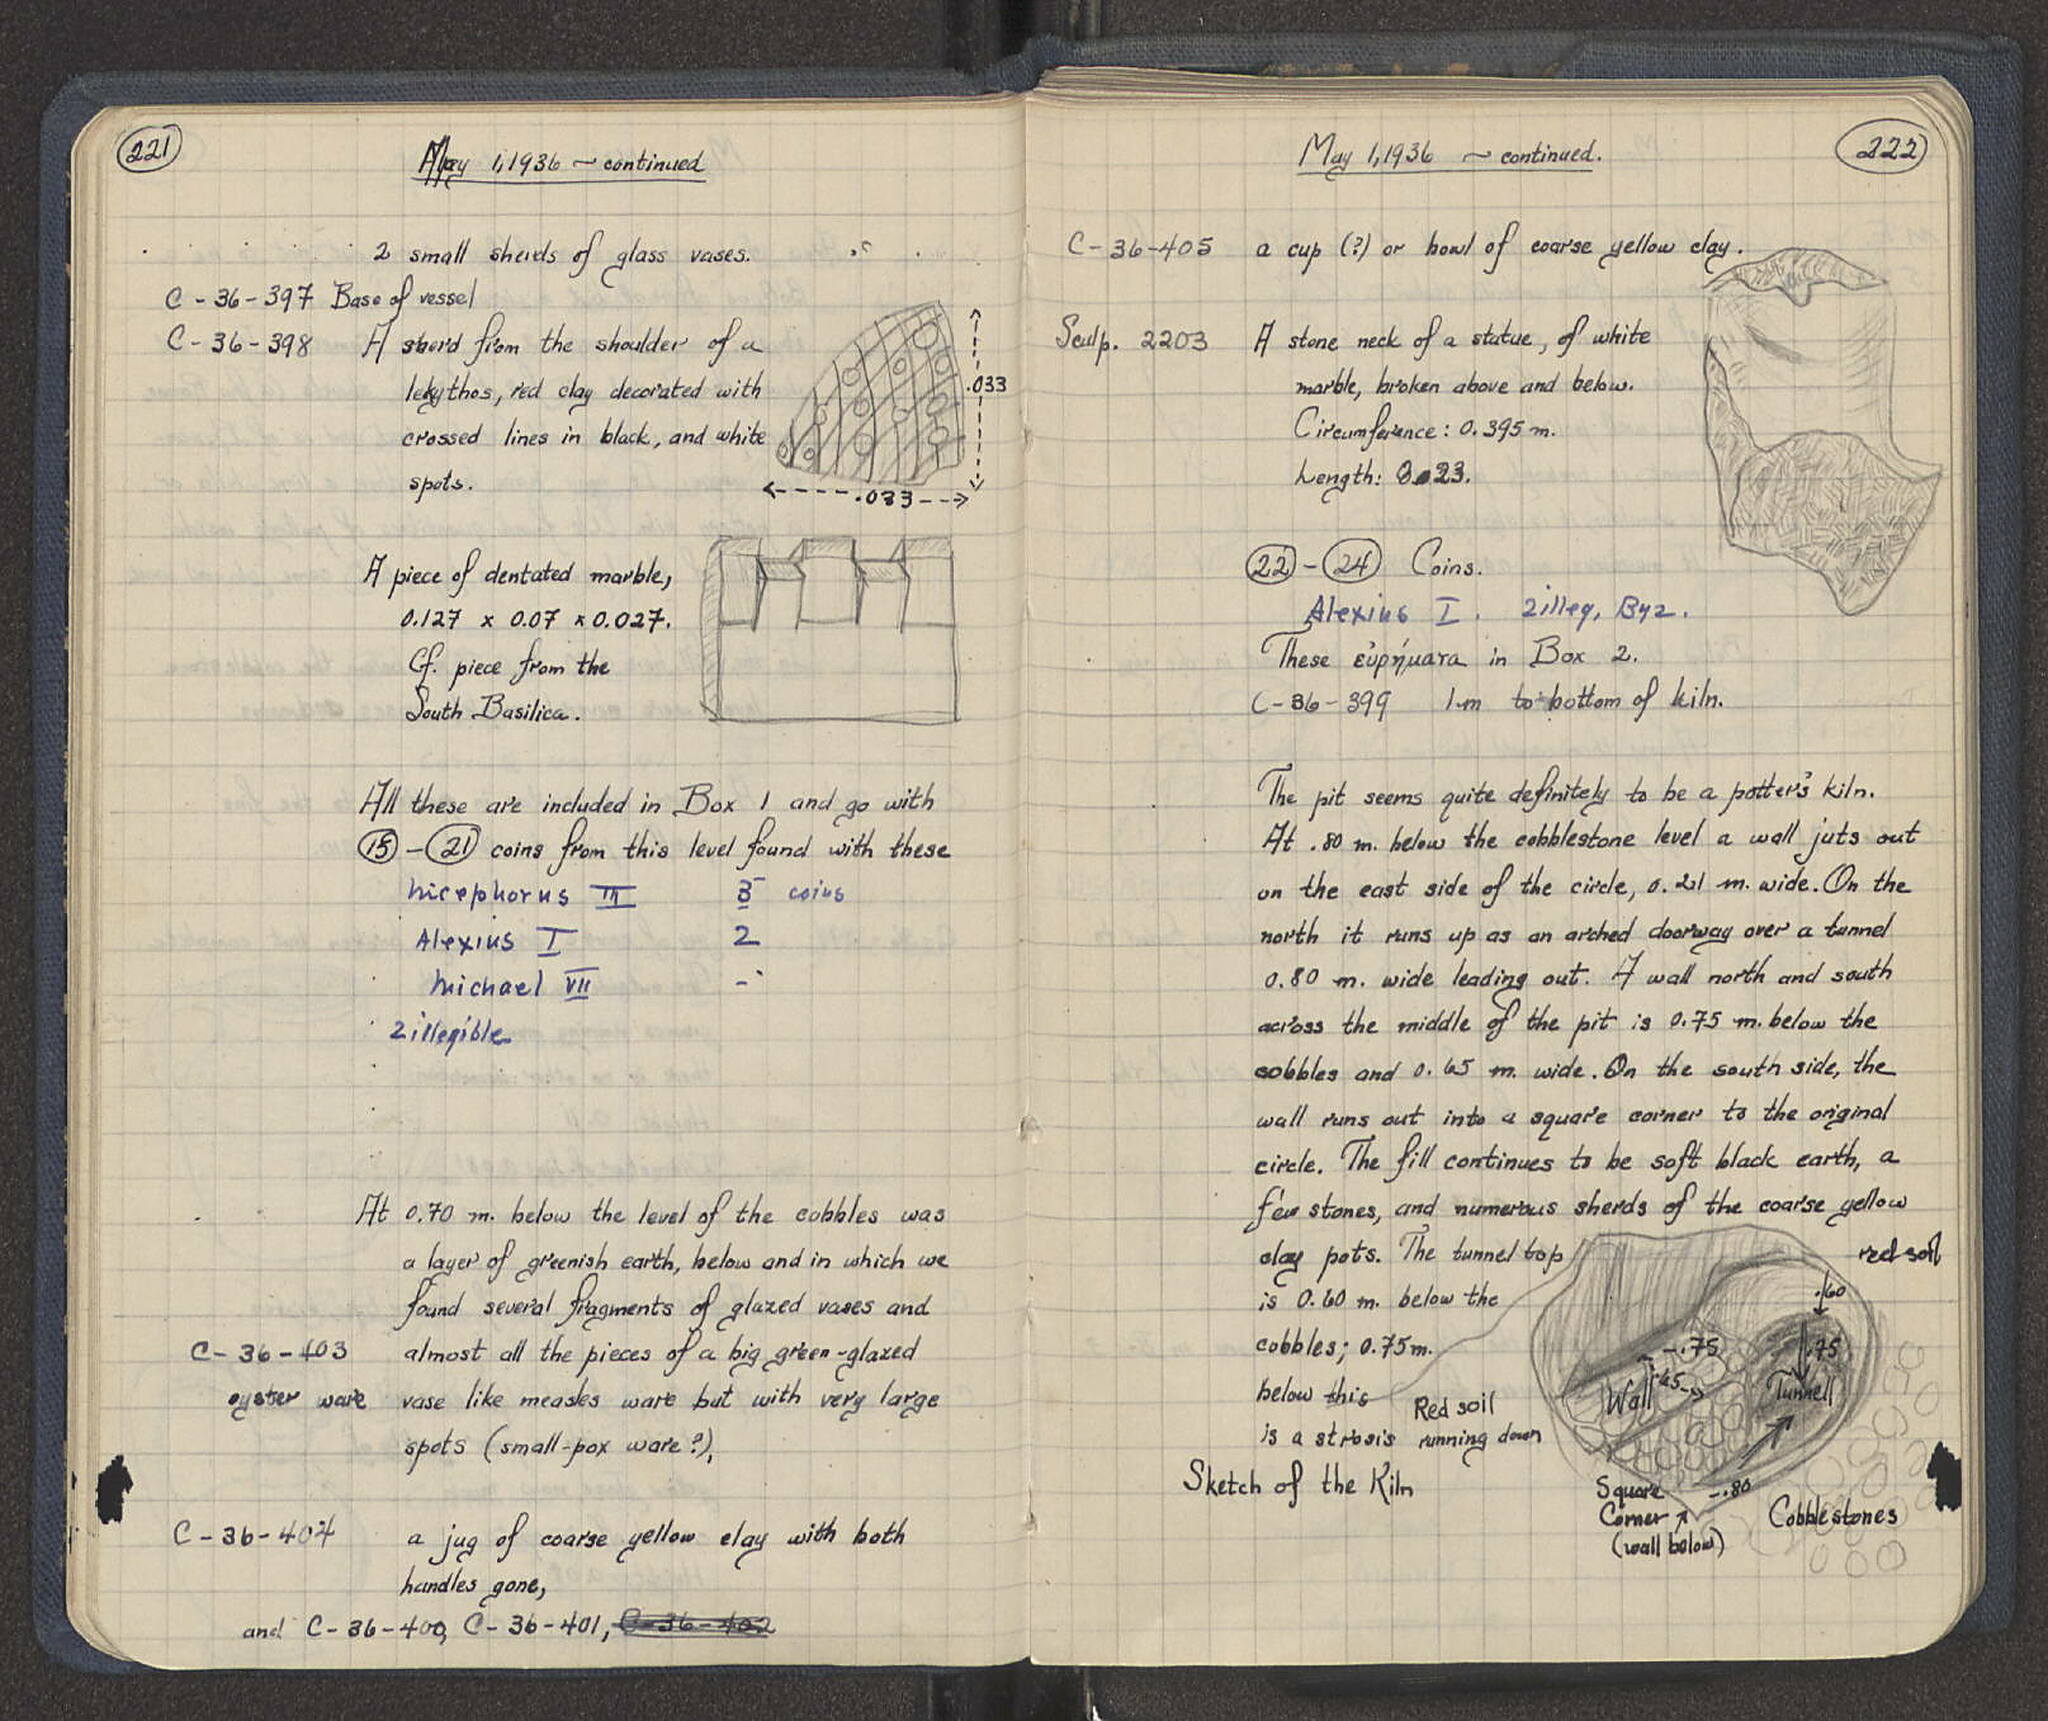 221
May 1, 1936 - continued
2 small sherds of glass vases.
C-36-397 Base of vessel
C-36-398 A sherd from the shoulder of a
lekythos, red clay decorated with
crossed lines in black, and white
spots.
.033
.033
A piece of dentated marble,
0.127 x 0.07 x 0.027.
Cf. piece from the
South Basilica.
All these are included in Box 1 and go with
15 - 21 coins from this level found with these
Nicephorus III coins
Alexius I 2
Michael VII -
2 illegible
At 0.70 m. below the level of the cobbles was
a layer of greenish earth, below and in which we
found several fragments of glazed vases and
C-36-403 almost all the pieces of a big green-glazed
oyster ware vase like measles ware but with very large
spots (small-pox ware?),
C-36-404 a jug of coarse yellow clay with both
handles gone,
and C-36-400, C-36-401, C-36-402
May 1, 1936 - continued.
222
C-36-405 a cup (?) or bowl of coarse yellow clay.
Sculp. 2203 A stone neck of a statue, of white
marble, broken above and below.
Circumference: 0.395 m.
Length: 0.23.
22 - 24 Coins.
Alexius I. 2 illeg, Byz.
These εὑρήματα in Box 2.
C-36-399 1 m to bottom of kiln.
The pit seems quite definitely to be a potter's kiln.
At .80 m. below the cobblestone level a wall juts out
on the east side of the circle, 0.21 m. wide. On the
north it runs up as an arched doorway over a tunnel
0.80 m. wide leading out. A wall north and south
across the middle of the pit is 0.75 m. below the
cobbles and 0.65 m. wide. On the south side, the
wall runs out into a square corner to the original
circle. The fill continues to be soft black earth, a
few stones, and numerous sherds of the coarse yellow
clay pots. The tunnel top
is 0.60 m. below the
cobbles; 0.75 m.
below this
is a strosis
red soil
.60
-.75
.75
Wall
.65
Tunnell
Red soil
running down
Sketch of the Kiln
Square
Corner
(wall below)
-.80
Cobblestones